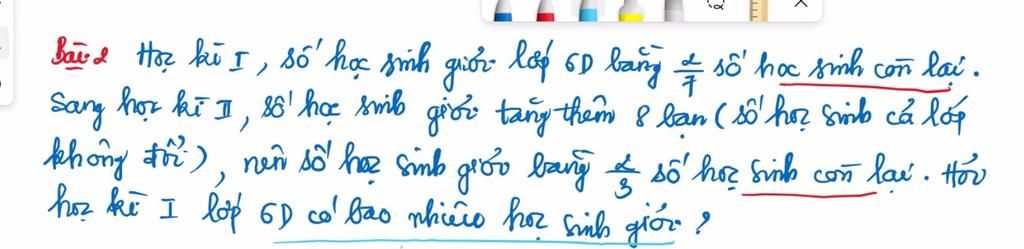 Bài 2 Học kì I, số học sinh giỏi lớp 6D bằng 2/7 số học sinh còn lại.
Sang học kì II, số học sinh giỏi tăng thêm 8 bạn (số học sinh cả lớp
không đổi), nên số học sinh giỏi bằng 2/3 số học sinh còn lại. Hỏi
học kì I lớp 6D có bao nhiêu học sinh giỏi?